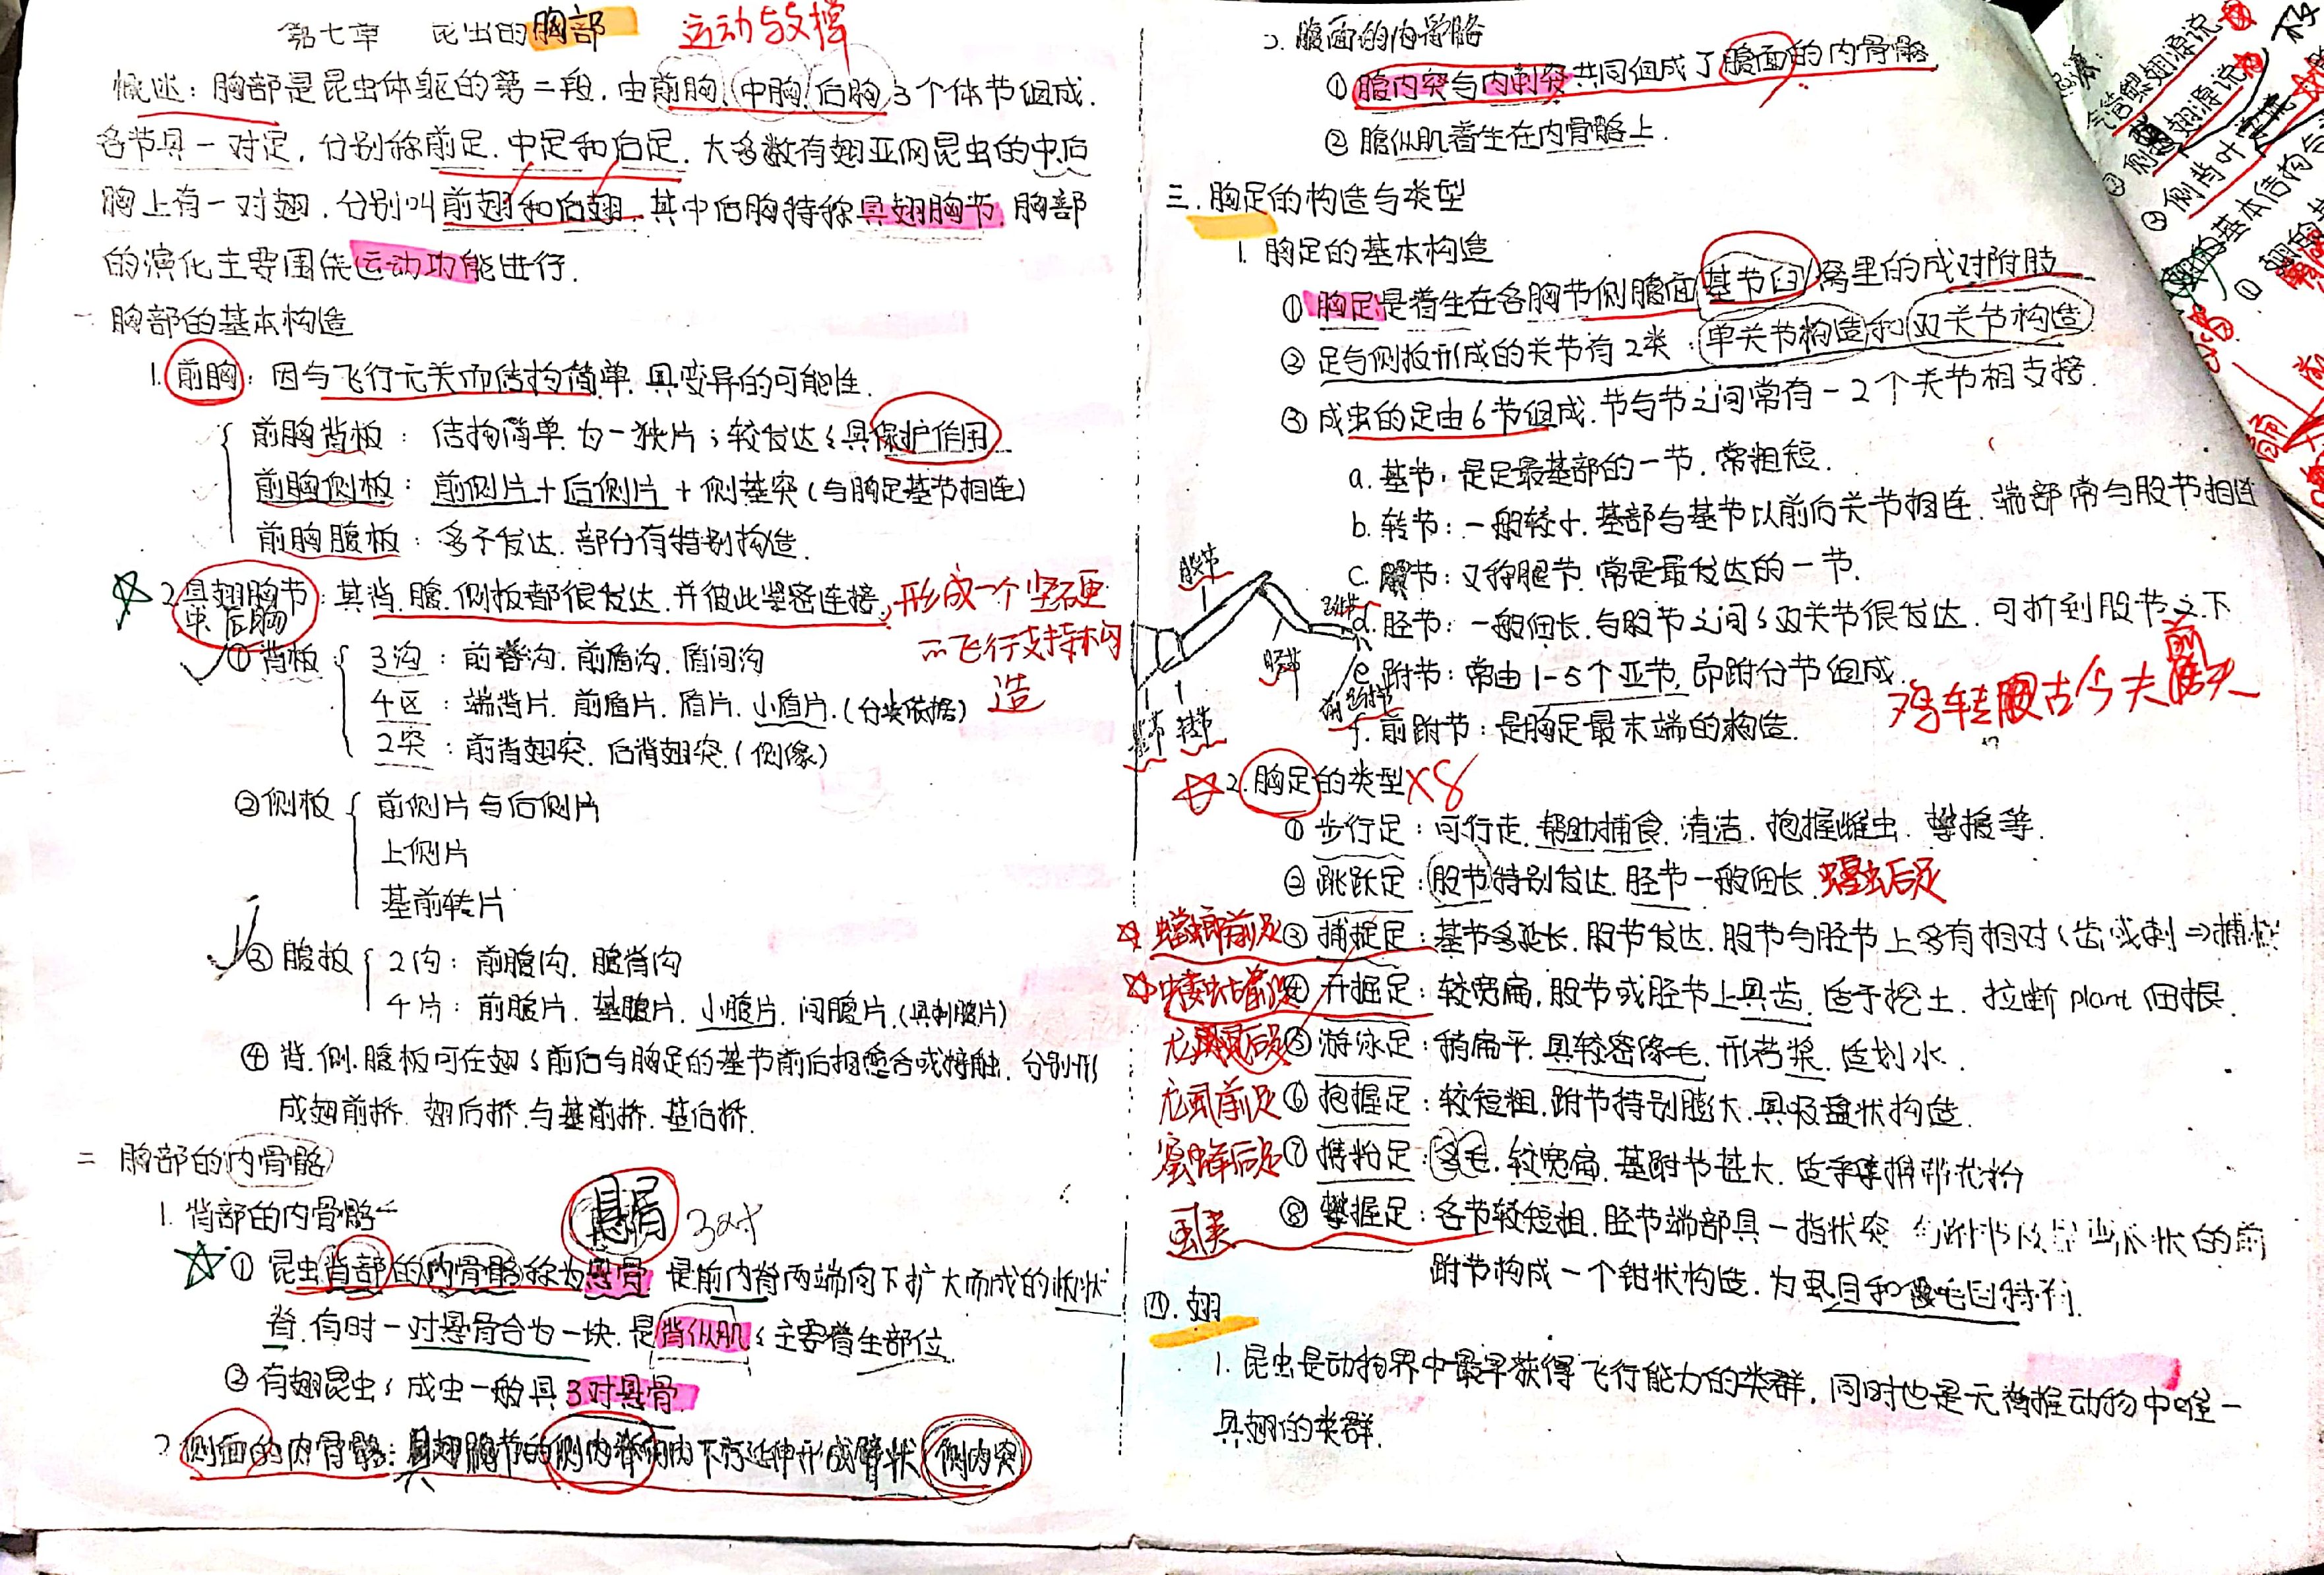 第七章 昆虫的胸部 运动与支撑
概述：胸部是昆虫体躯的第二段，由前胸、中胸、后胸3个体节组成.
各节具一对足，分别称前足.中足和后足.大多数有翅亚网昆虫的中.后
胸上有一对翅，分别叫前翅和后翅.其中后胸特称具翅胸节.胸部
的演化主要围绕运动功能进行.
一 胸部的基本构造
1. 前胸：因与飞行无关而结构简单.具变异的可能性.
前胸背板：结构简单.为一狭片；较发达；具保护作用
前胸侧板：前侧片+后侧片+侧基突(与胸足基节相连)
前胸腹板：多不发达.部分有特别构造.
2.具翅胸节：其背.腹.侧板都很发达.并彼此紧密连接，形成一个坚硬
中.后胸
飞行支持构
造
①背板 3沟：前脊沟.前盾沟.盾间沟
4区：端背片.前盾片.盾片.小盾片.(分类依据)
2突：前背翅突.后背翅突.(侧缘)
②侧板 前侧片与后侧片
上侧片
基前转片
③腹板 2沟：前腹沟.腹脊沟
4片：前腹片.基腹片.小腹片.间腹片.(具刺腹片)
④背.侧.腹板可在翅的前后与胸足的基节前后相愈合或接触.分别形
成翅前桥.翅后桥.与基前桥.基后桥.
二 胸部的内骨骼
1.背部的内骨骼
悬骨 3对
①昆虫背部的内骨骼称为悬骨 是前内脊两端向下扩大而成的板状
脊.有时一对悬骨合为一块.是背纵肌的主要着生部位
②有翅昆虫的成虫一般具3对悬骨
2.侧面的内骨骼：具翅胸节的侧内脊向内下方延伸形成臂状 侧内突
3.腹面的内骨骼
①腹内突与内刺突共同组成了腹面的内骨骼
②腹纵肌着生在内骨骼上.
三.胸足的构造与类型
1.胸足的基本构造
①胸足是着生在各胸节侧腹面基节臼窝里的成对附肢
②足与侧板形成的关节有2类：单关节构造和双关节构造
③成虫的足由6节组成.节与节之间常有一2个关节相支接.
a.基节：是足最基部的一节.常粗短.
b.转节：一般较小.基部与基节以前后关节相连.端部常与股节相连
c.股节：又称腿节.常是最发达的一节.
d.胫节：一般细长.与股节之间的双关节很发达.可折到股节之下
e.跗节：常由1-5个亚节.即跗分节组成.
f.前跗节：是胸足最末端的构造.
股节
胫节
跗节
前跗节
基节 转节
2.胸足的类型×8
①步行足：可行走.帮助捕食.清洁.抱握雌虫.攀援等.
②跳跃足：股节特别发达.胫节一般细长.蝗虫后足
螳螂前足③捕捉足：基节多延长.股节发达.股节与胫节上多有相对的齿或刺⇒捕
蝼蛄前足④开掘足：较宽扁.股节或胫节上具齿.适于挖土.拉断plant细根.
龙虱后足⑤游泳足：稍扁平.具较密缘毛.形若桨.适划水.
龙虱前足⑥抱握足：较短粗.跗节特别膨大.具吸盘状构造.
蜜蜂后足⑦携粉足：多毛.较宽扁.基跗节甚大.适于携带花粉
虱类 ⑧攀握足：各节较短粗.胫节端部具一指状突 状的前
跗节构成一个钳状构造.为虱目和食毛目特有.
四.翅
1.昆虫是动物界中最早获得飞行能力的类群，同时也是无脊椎动物中唯一
具翅的类群.
气管鳃翅源说
翅源说
侧
侧背
翅的基本结构